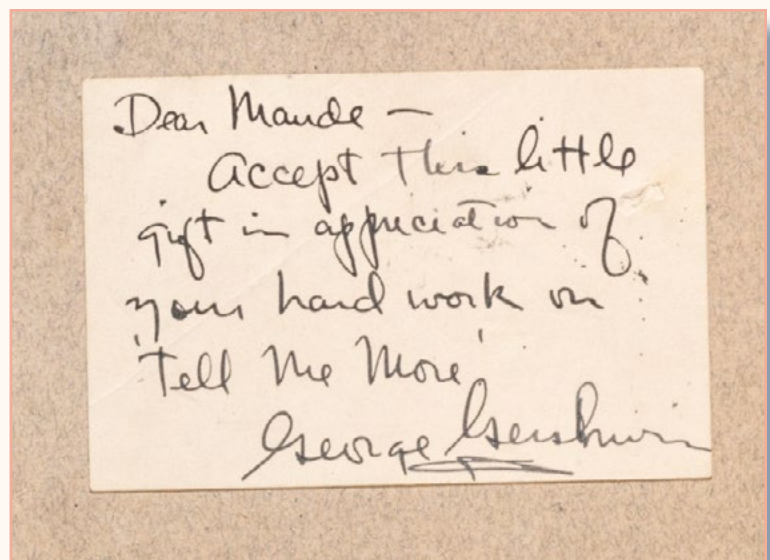 Dear Maude —
Accept this little
gift in appreciation of
your hard work on
'Tell Me More'
George Gershwin